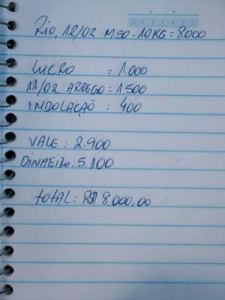 Rio, 12/02 M50-10KG = 8000
LUCRO : 1.000
11/02 ARREGO : 1500
INDOLAÇÃO : 400
VALE : 2.900
DINHEIRO : 5.100
TOTAL : R$ 8.000,00